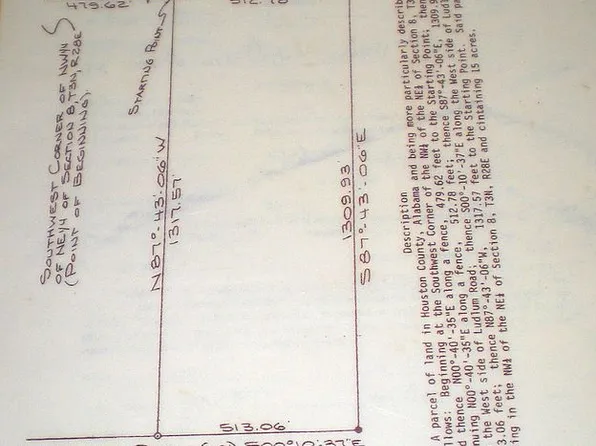 479.62'
512.78'
SOUTHWEST CORNER OF NW1/4
OF NE1/4 OF SECTION 8, T3N, R28E
(POINT OF BEGINNING).
STARTING POINT
N87°-43'-06"W
1317.57'
1309.93'
S87°-43'-06"E
513.06'
S00°10'-37"E
Description
A parcel of land in Houston County, Alabama and being more particularly describ
ows: Beginning at the Southwest Corner of the NW¼ of the NE¼ of Section 8, T3
d thence N00°-40'-35"E along a fence, 479.62 feet to the Starting Point; then
nuing N00°-40'-35"E along a fence, 512.78 feet; thence S87°-43'-06"E, 1309.9
the West side of Ludlum Road; thence S00°-10'-37"E along the West side of Ludl
3.06 feet; thence N87°-43'-06"W, 1317.57 feet to the Starting Point. Said pa
ng in the NW¼ of the NE¼ of Section 8, T3N, R28E and cintaining 15 acres.